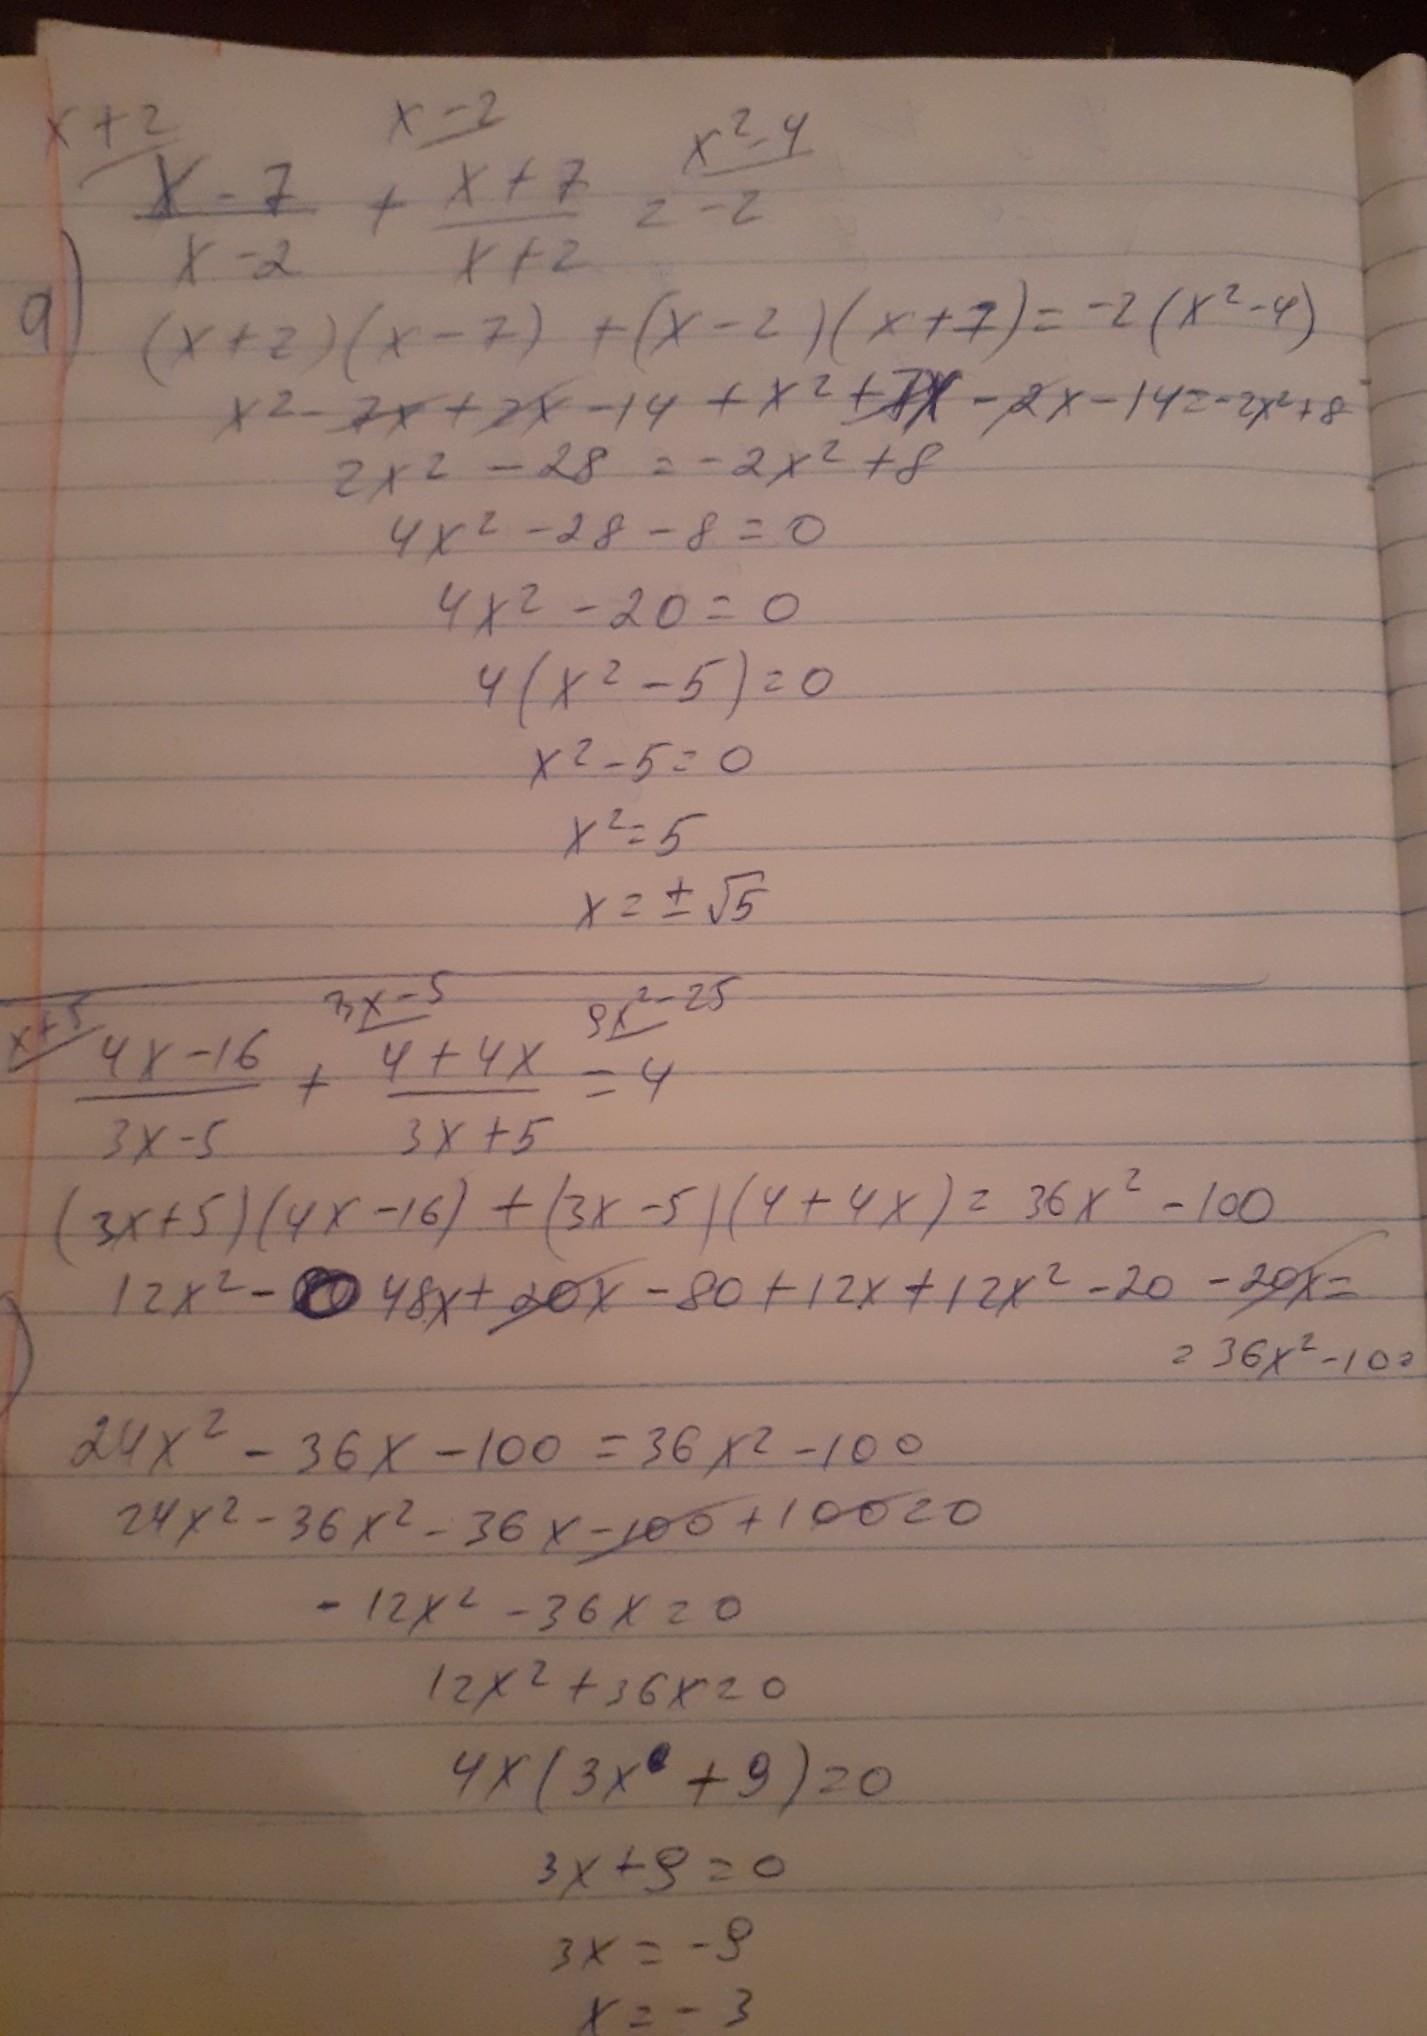 x+2 x-2 x²-4
x-7 + x+7 = -2
x-2 x+2
a)
(x+2)(x-7) + (x-2)(x+7) = -2(x²-4)
x² - 7x + 2x - 14 + x² + 7x - 2x - 14 = -2x² + 8
2x² - 28 = -2x² + 8
4x² - 28 - 8 = 0
4x² - 20 = 0
4(x² - 5) = 0
x² - 5 = 0
x² = 5
x = ± √5
x+5 3x-5 9x²-25
4x-16 + 4+4x = 4
3x-5 3x+5
(3x+5)(4x-16) + (3x-5)(4+4x) = 36x² - 100
12x² - 48x + 20x - 80 + 12x + 12x² - 20 - 20x =
= 36x² - 100
)
24x² - 36x - 100 = 36x² - 100
24x² - 36x² - 36x - 100 + 100 = 0
- 12x² - 36x = 0
12x² + 36x = 0
4x(3x + 9) = 0
3x + 9 = 0
3x = -9
x = -3